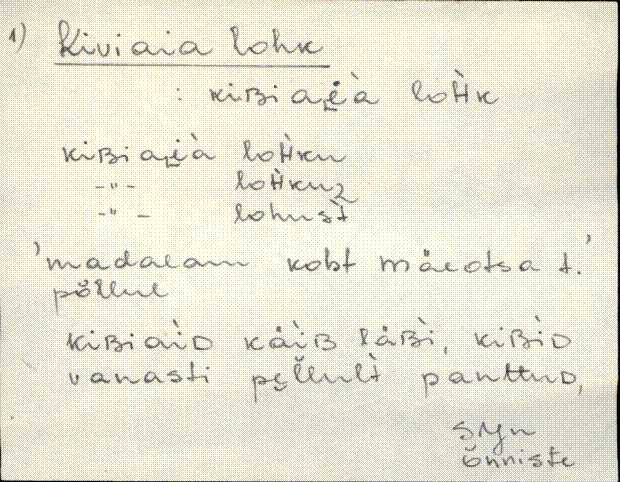 1) Kiviaia lohk
: kiʙiai̯à loH̀k
kiʙiai̯à loH̀ku
-"- loH̀kuz
-"- lohust̀
'madalam koht mäeotsa t.'
põllul
kiʙiaìD käìB läBì, kiʙìD
vanasti pe̮llult̀ panttuD,
SMn
Õnniste